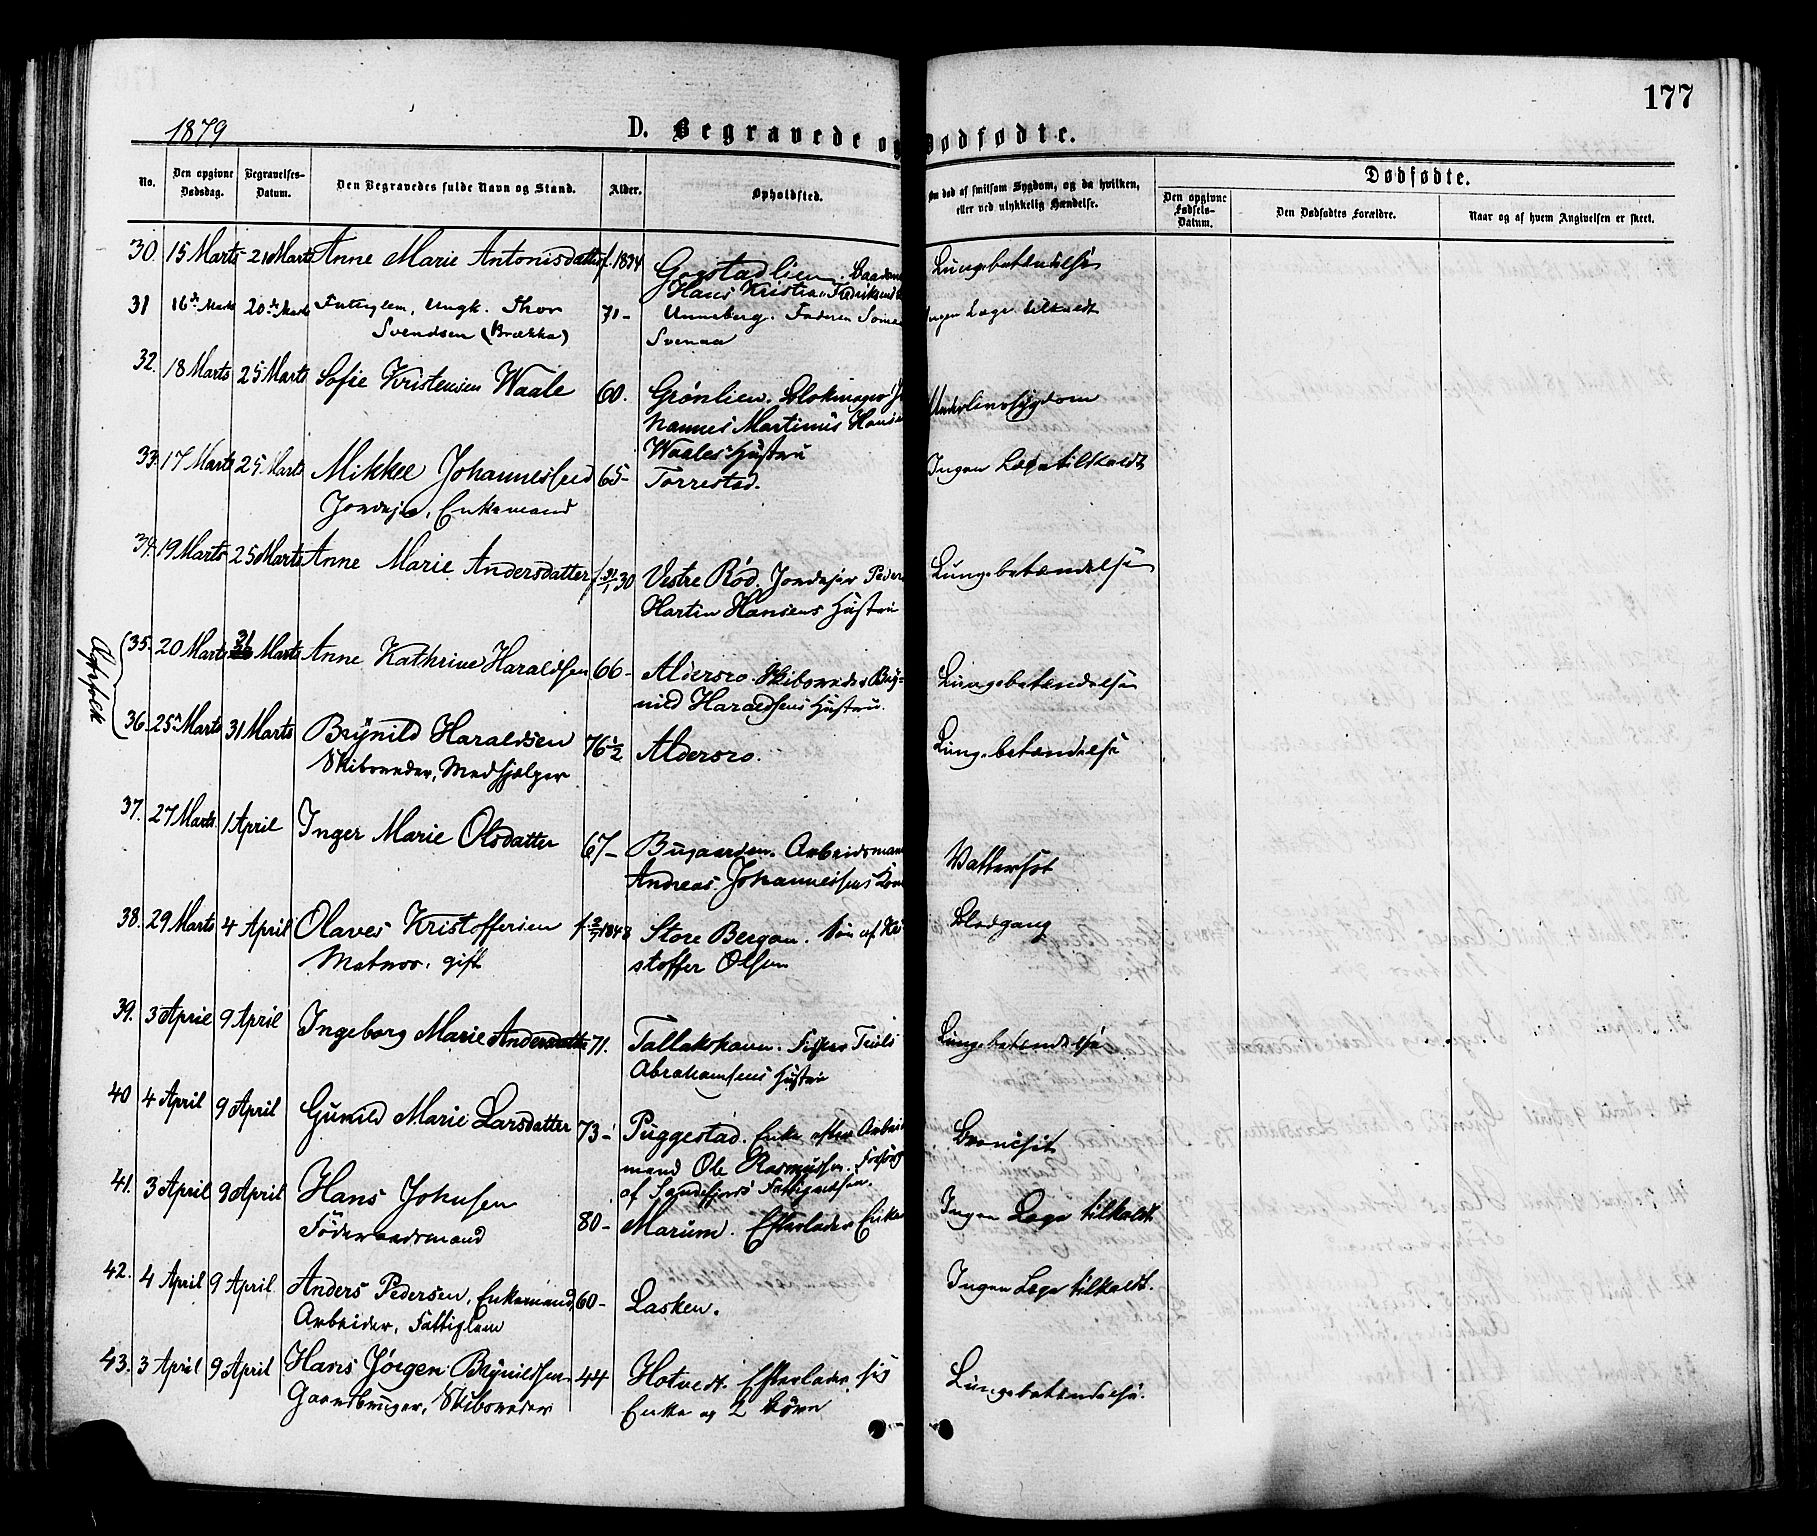 177
1879
D. Begravede og Dødfødte.
No.
Den opgivne Dødsdag.
Begravelses-Datum.
Den Begravedes fulde Navn og Stand.
Alder.
Opholdsted.
Om død af smitsom Sygdom, og da hvilken, eller ved ulykkelig Hændelse.
Dødfødte.
Den opgivne Fødsels-Datum.
Den Dødfødtes Forældre.
Naar og af hvem Angivelsen er skeet.
30. 15 Marts 21 Marts Anne Marie Antonisdatter f. 1834 Gogstadlien. Lungebetændelse
Hans Kristian
31 16de Marts 20de Marts Fattiglem, Ungk. Thor 71- Unneberg. Faderen Ingen Læge tilkaldt
Svendsen (Brækka)
32. 18 Marts 25 Marts Sofie Kristensen Waale 60. Grønlien. Blokmager Jo Underlivssygdom
hannes Martinus Hansen
Waales Hustru
33. 17 Marts 25. Marts Mikkel Johannessen 65- Torrestad. Ingen Læge tilkaldt
Jordejer, Enkemand
34. 19 Marts 25 Marts Anne Marie Andersdatter f. 31/1 30 Vestre Rød. Jordejer Peder Lungebetændelse
Martin Hansens Hustru
Ægtefolk
35. 20 Marts 31 Marts Anne Kathrine Haraldsen 66- Aldersro. Skibsreder Bry- Lungebetændelse
nild Haraldsens Hustru.
36. 25 Marts 31 Marts Brynild Haraldsen 76 1/2 Aldersro. Lungebetændelse
Skibsreder, Medhjælper
37. 27 Marts. 1 April Inger Marie Olsdatter 67- Bugaarden. Arbeidsmand Vattersot
Andreas Johannessens Kone
38. 29 Marts 4 April Olaves Kristoffersen f. 2/7 1848 Store Bergan. Søn af Kri Blodgang
Matros. gift stoffer Olsen
39. 3 April 9 April Ingeborg Marie Andersdatter 71. Tallakshavn. Fisker Truls Lungebetændelse
Abrahamsens Hustru
40 4 April 9 April Gunild Marie Larsdatter 73- Puggestad. Enke efter Arbeids Bronchit
mand Ole Rasmussen. Forsørget
af Sandefjords Fattigvæsen.
41. 3 April 9 April Hans Johnsen 80- Marum. Efterlader Enke Ingen Læge tilkaldt
Føderaadsmand
42. 4 April 9 April Anders Pedersen, Enkemand 60- Lasken. Ingen Læge tilkaldt.
Arbeider, Fattiglem
43. 3 April 9 April Hans Jørgen Brynildsen 44 Hotvedt. Efterlader sig Lungebetændelse.
Gaardbruger, Skibsreder Enke og 2 Børn